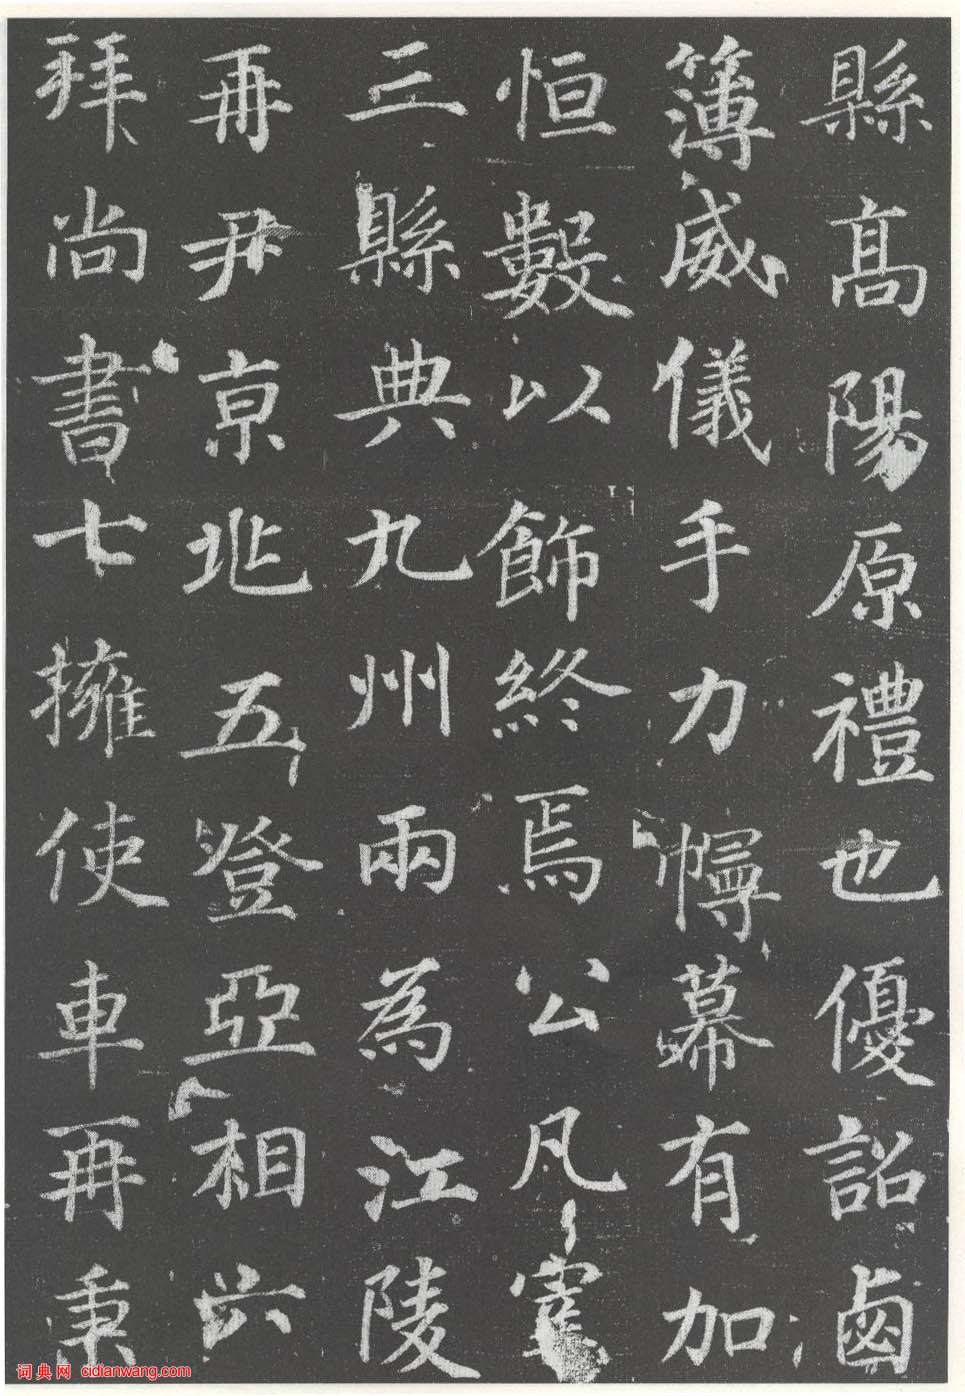 縣高陽原禮也優詔鹵
簿威儀手力幰幕有加
恒數以飾終焉公凡宰
三縣典九州兩為江陵
再尹京兆五登亞相六
拜尚書七擁使車再秉
词典网 cidianwang.com